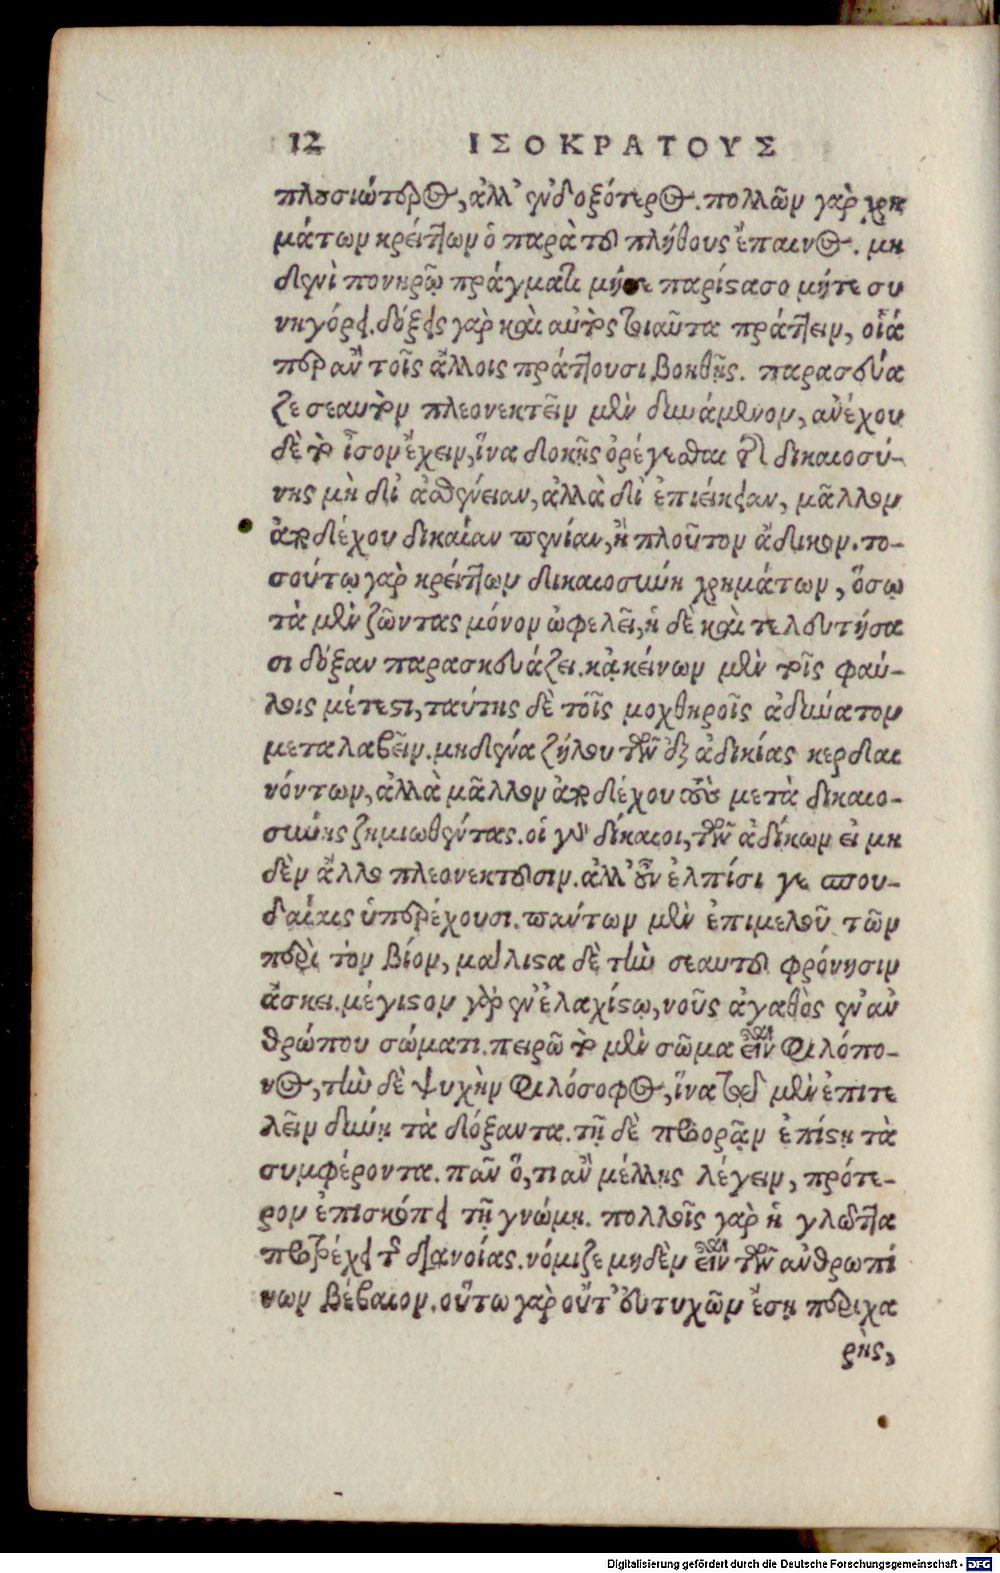 12 ΙΣΟΚΡΑΤΟΥΣ
πλουσιώτερος, ἀλλ' ἐνδοξότερος. πολλῶν γὰρ χρη
μάτων κρείττων ὁ παρὰ τοῦ πλήθους ἔπαινος. μη
δενὶ πονηρῷ πράγματι μήτε παρίστασο μήτε συ
νηγόρει. δόξεις γὰρ καὶ αὐτὸς τοιαῦτα πράττειν, οἷά
περ ἂν τοῖς ἄλλοις πράττουσι βοηθῇς. παρασκεύα
ζε σεαυτὸν πλεονεκτεῖν μὲν δυνάμενον, ἀνέχου
δὲ τὸ ἶσον ἔχειν, ἵνα δοκῇς ὀρέγεσθαι τῆς δικαιοσύ-
νης μὴ δι' ἀσθένειαν, ἀλλὰ δι' ἐπιείκειαν, μᾶλλον
ἀποδέχου δικαίαν πενίαν, ἢ πλοῦτον ἄδικον. το-
σούτῳ γὰρ κρείττων δικαιοσύνη χρημάτων, ὅσῳ
τὰ μὲν ζῶντας μόνον ὠφελεῖ, ἡ δὲ καὶ τελευτήσα
σι δόξαν παρασκευάζει. κἀκείνων μὲν τοῖς φαύ-
λοις μέτεστι, ταύτης δὲ τοῖς μοχθηροῖς ἀδύνατον
μεταλαβεῖν. μηδένα ζήλου τῶν ἐξ ἀδικίας κερδαι
νόντων, ἀλλὰ μᾶλλον ἀποδέχου τοὺς μετὰ δικαιο-
σύνης ζημιωθέντας. οἱ γὰρ δίκαιοι, τῶν ἀδίκων εἰ μη
δὲν ἄλλο πλεονεκτοῦσιν. ἀλλ' οὖν ἐλπίσι γε σπου-
δαίαις ὑπερέχουσι. πάντων μὲν ἐπιμελοῦ τῶν
περὶ τὸν βίον, μάλιστα δὲ τὴν σεαυτοῦ φρόνησιν
ἄσκει. μέγιστον γὰρ ἐν ἐλαχίστῳ, νοῦς ἀγαθὸς ἐν ἀν
θρώπου σώματι. πειρῶ τὸ μὲν σῶμα εἶναι φιλόπο-
νος, τὴν δὲ ψυχὴν φιλόσοφος, ἵνα τῷ μὲν ἐπιτε
λεῖν δύνῃ τὰ δόξαντα. τῇ δὲ προορᾷν ἐπίστῃ τὰ
συμφέροντα. πᾶν ὅ, τι ἂν μέλλῃς λέγειν, πρότε-
ρον ἐπισκόπει τῇ γνώμῃ. πολλοῖς γὰρ ἡ γλῶττα
προτρέχει τῆς διανοίας. νόμιζε μηδὲν εἶναι τῶν ἀνθρωπί
νων βέβαιον. οὕτω γὰρ οὔτ' εὐτυχῶν ἔσῃ περιχα
ρὴς,
Digitalisierung gefördert durch die Deutsche Forschungsgemeinschaft - DFG